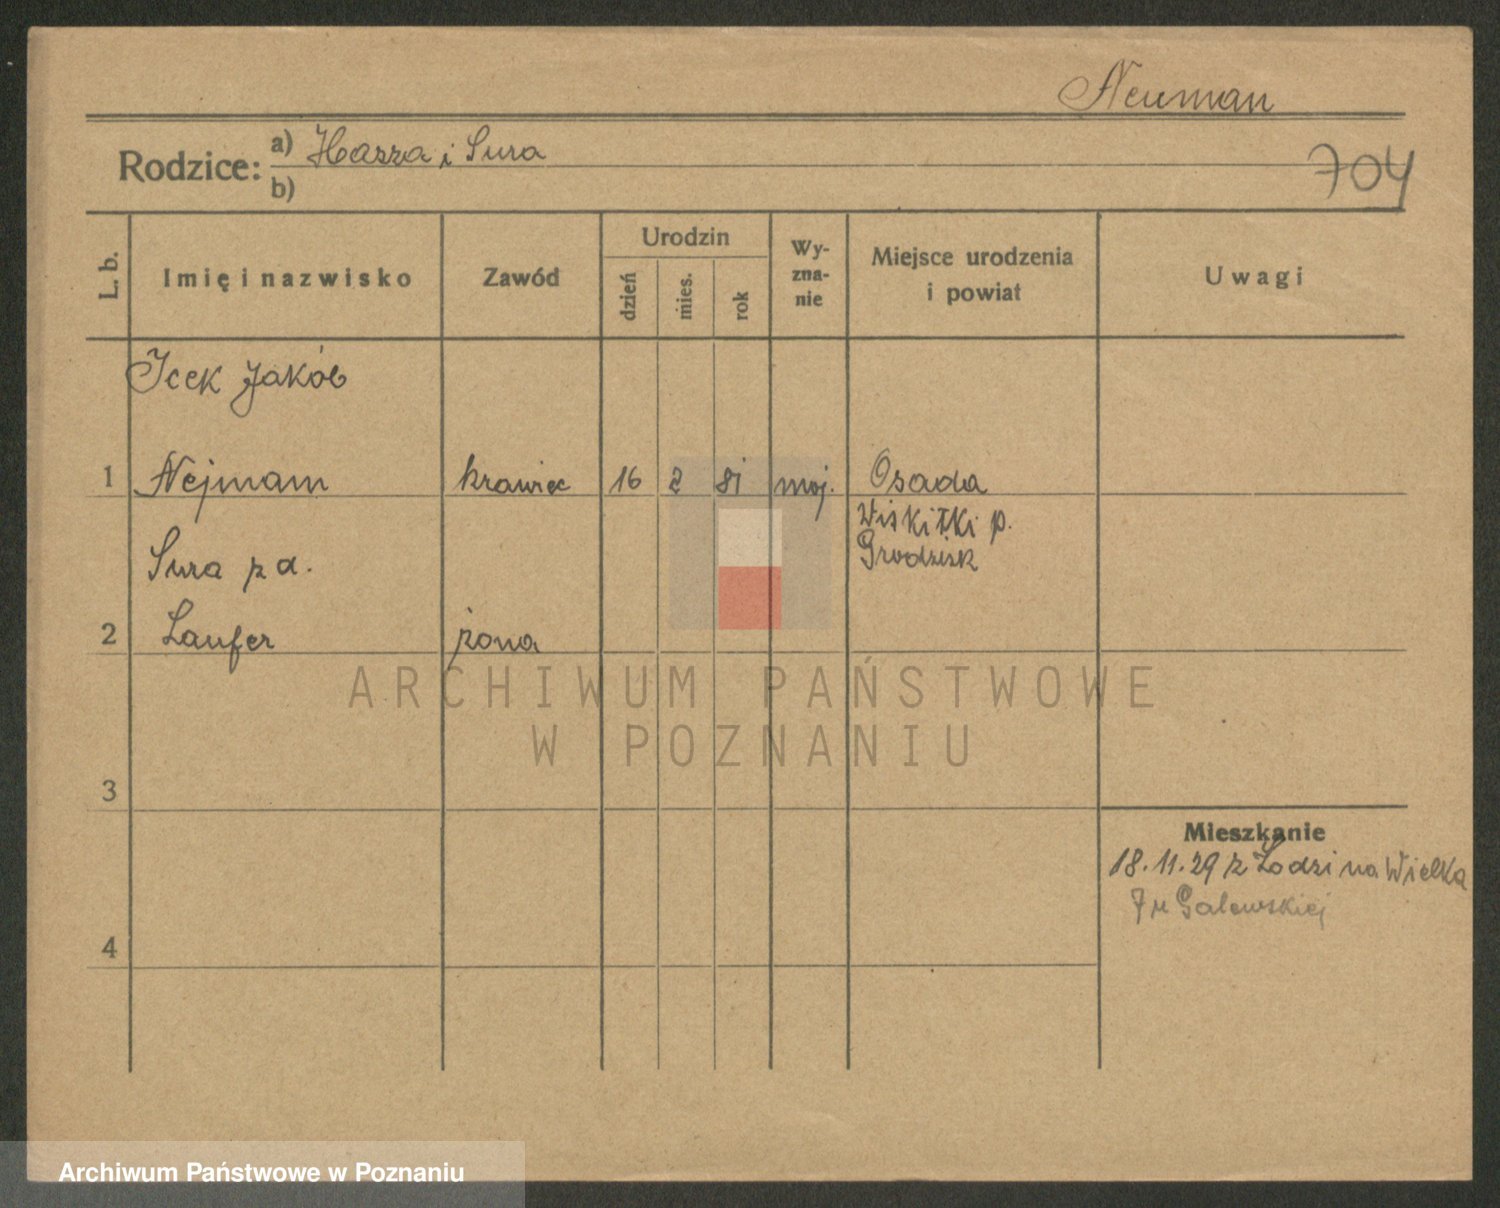 Neuman
Rodzice: a) Hassa i Sura
b)
704
L. b.
Imię i nazwisko
Zawód
Urodzin
dzień
mies.
rok
Wy-
zna-
nie
Miejsce urodzenia
i powiat
Uwagi
Icek Jakób
1 Nejmam krawiec 16 2 81 moj. Osada
Wiskitki p.
Grodzisk
Sura z d.
2 Laufer żona
ARCHIWUM PAŃSTWOWE
W POZNANIU
3
Mieszkanie
18.11.29 z Łodzi na Wielka
7 u Galewskiej
4
Archiwum Państwowe w Poznaniu